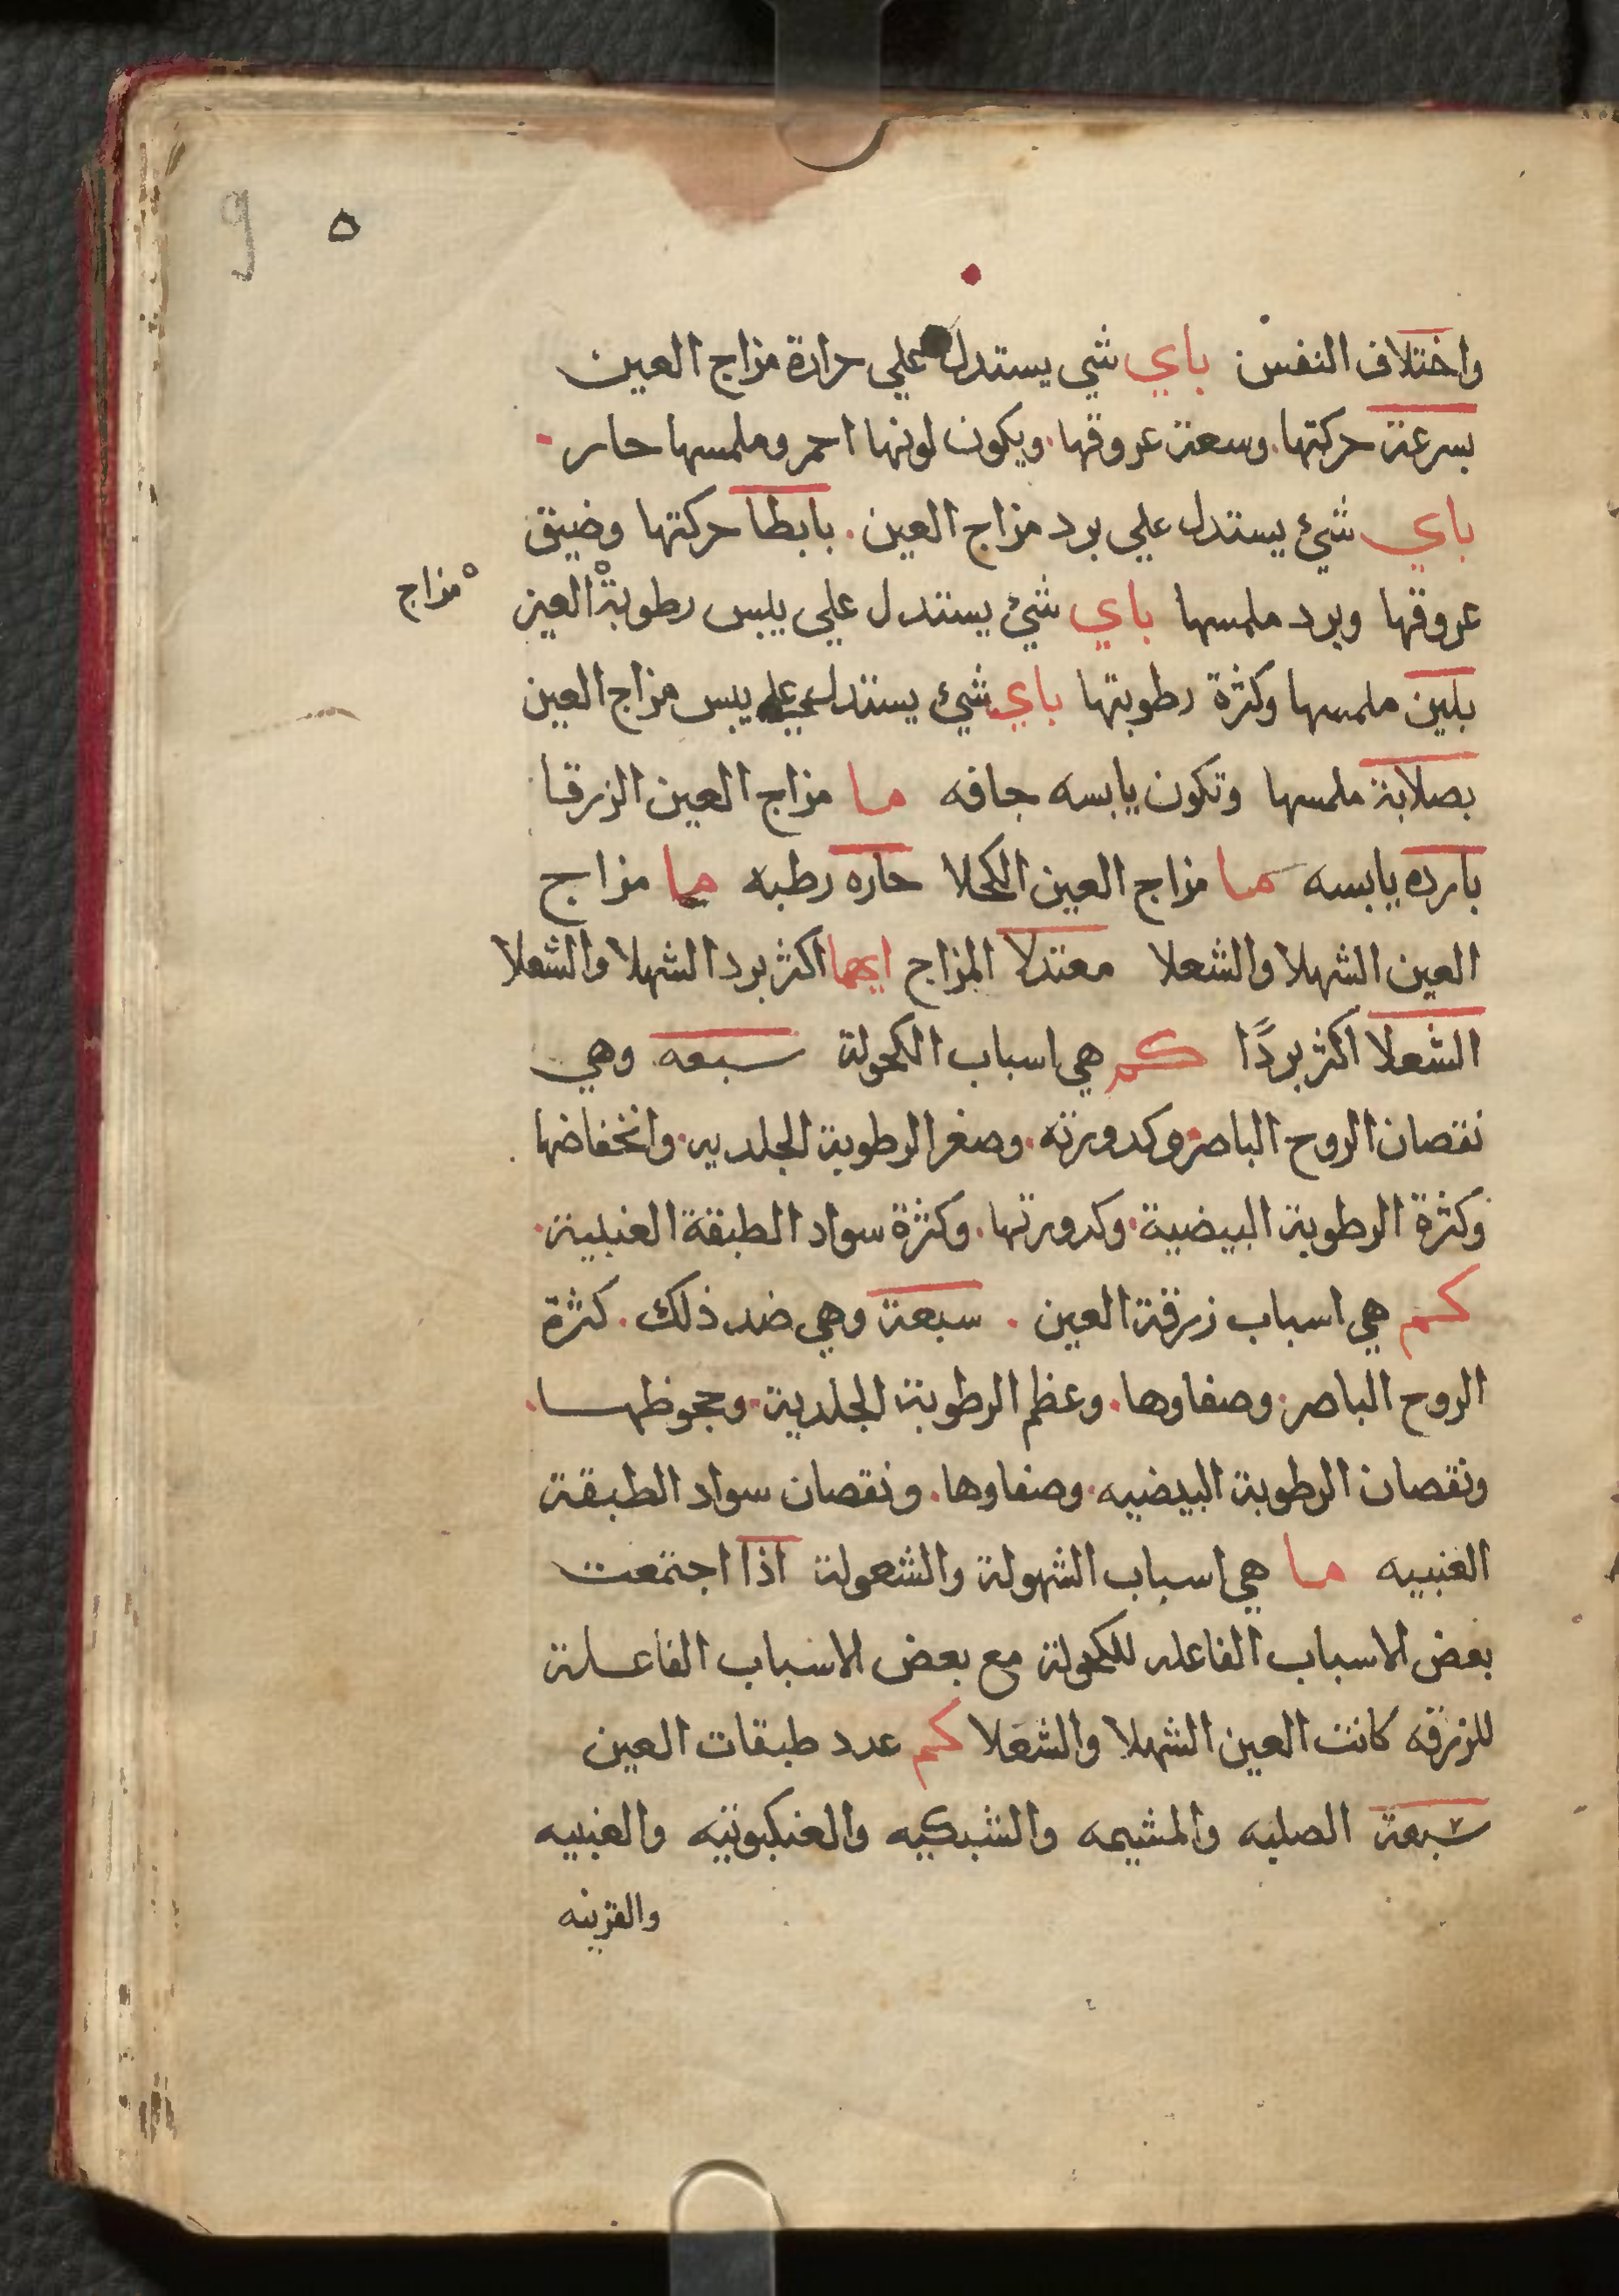 9 ٥
واختلاف النفس باي شي يستدل علي حرارة مزاج العين
بسرعة حركتها. وسعة عروقها. ويكون لونها احمر وملمسها حار
باي شيء يستدل علي برد مزاج العين. بابطا حركتها وضيق
عروقها وبرد ملمسها باي شيء يستدل علي يبس رطوبة العين
مزاج
بلين ملمسها وكثرة رطوبتها باي شيء يستدل علي يبس مزاج العين
بصلابة ملمسها وتكون يابسه جافه ما مزاج العين الزرقا
بارده يابسه ما مزاج العين الكحلا حاره رطبه ما مزاج
العين الشهلا والشعلا معتدلا المزاج ايهما اكثر برد الشهلا والشعلا
الشعلا اكثر بردًا كم هي اسباب الكحولة سبعه وهي
نقصان الروح الباصر. وكدورته. وصغر الرطوبة الجلديه. وانخفاضها
وكثرة الرطوبة البيضية. وكدورتها. وكثرة سواد الطبقة العنبية.
كم هي اسباب زرقة العين. سبعة وهي ضد ذلك. كثرة
الروح الباصر. وصفاوها. وعظم الرطوبة الجلدية. وجحوظها.
ونقصان الرطوبة البيضيه. وصفاوها. ونقصان سواد الطبقة
العنبيه ما هي اسباب الشهولة والشعولة اذا اجتمعت
بعض الاسباب الفاعله للكحولة مع بعض الاسباب الفاعلة
للزرقه كانت العين الشهلا والشعلا كم عدد طبقات العين
سبعة الصلبه والمشيمه والشبكيه والعنكبوتيه والعنبيه
والقرنيه